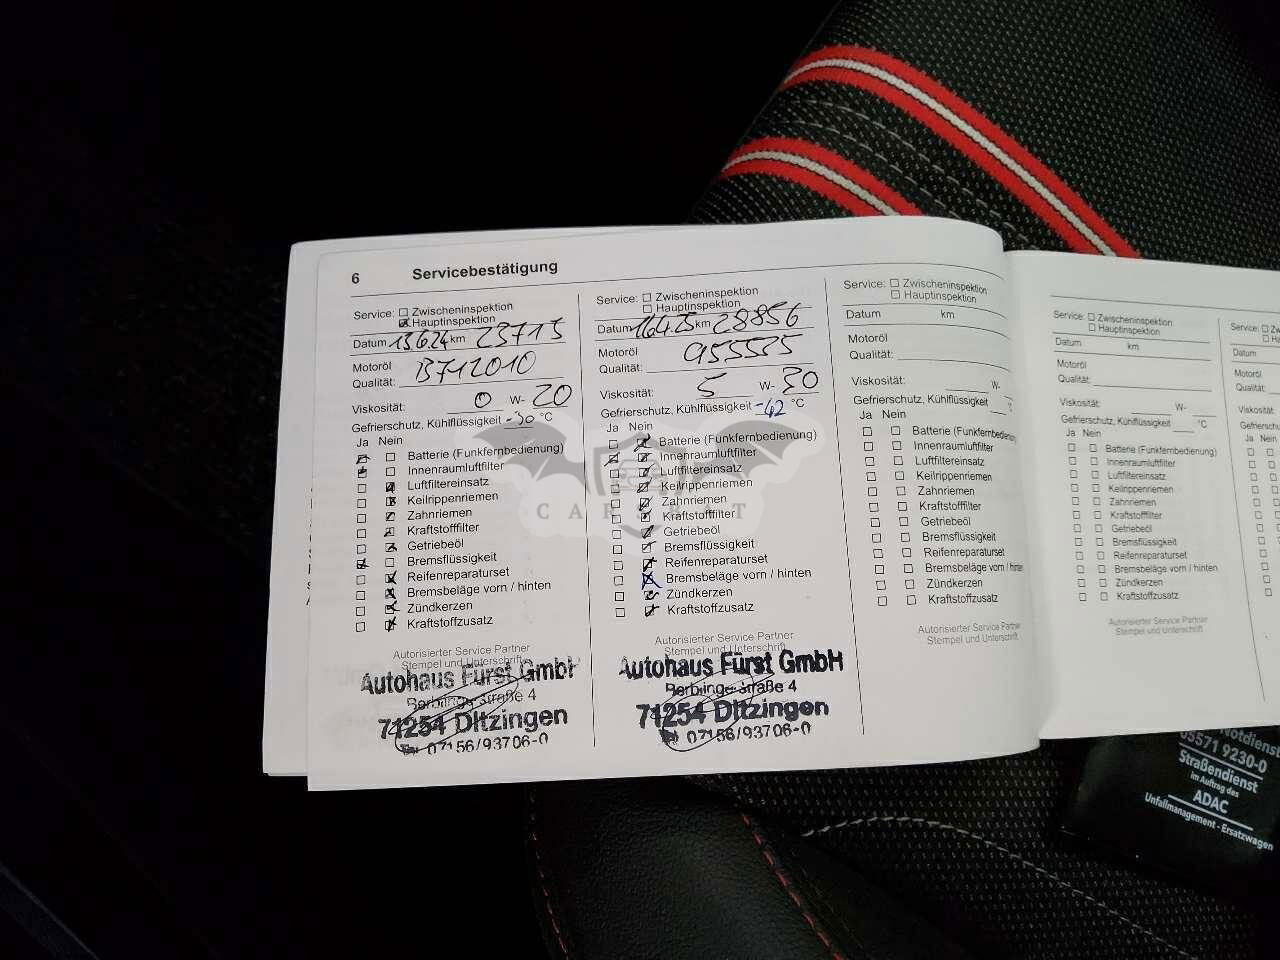 6 Servicebestätigung
Service: Zwischeninspektion
Hauptinspektion
Datum 13.6.24 km 23713
Motoröl
Qualität: B712010
Viskosität: 0 W- 20
Gefrierschutz, Kühlflüssigkeit -30 °C
Ja Nein
Batterie (Funkfernbedienung)
Innenraumluftfilter
Luftfiltereinsatz
Keilrippenriemen
Zahnriemen
Kraftstofffilter
Getriebeöl
Bremsflüssigkeit
Reifenreparaturset
Bremsbeläge vorn / hinten
Zündkerzen
Kraftstoffzusatz
Autorisierter Service Partner
Stempel und Unterschrift
Autohaus Fürst GmbH
Straße 4
71254 Ditzingen
07156/93706-0
Service: Zwischeninspektion
Hauptinspektion
Datum 16.4.25 km 28856
Motoröl
Qualität: 955535
Viskosität: 5 W- 30
Gefrierschutz, Kühlflüssigkeit -42 °C
Ja Nein
Batterie (Funkfernbedienung)
Innenraumluftfilter
Luftfiltereinsatz
Keilrippenriemen
Zahnriemen
Kraftstofffilter
Getriebeöl
Bremsflüssigkeit
Reifenreparaturset
Bremsbeläge vorn / hinten
Zündkerzen
Kraftstoffzusatz
Autorisierter Service Partner
Stempel und Unterschrift
Autohaus Fürst GmbH
Straße 4
71254 Ditzingen
07156/93706-0
Service: Zwischeninspektion
Hauptinspektion
Datum km
Motoröl
Qualität:
Viskosität: W-
Gefrierschutz, Kühlflüssigkeit °C
Ja Nein
Batterie (Funkfernbedienung)
Innenraumluftfilter
Luftfiltereinsatz
Keilrippenriemen
Zahnriemen
Kraftstofffilter
Getriebeöl
Bremsflüssigkeit
Reifenreparaturset
Bremsbeläge vorn / hinten
Zündkerzen
Kraftstoffzusatz
Autorisierter Service Partner
Stempel und Unterschrift
Service: Zwischeninspektion
Hauptinspektion
Datum km
Motoröl
Qualität:
Viskosität: W-
Gefrierschutz, Kühlflüssigkeit °C
Ja Nein
Batterie (Funkfernbedienung)
Innenraumluftfilter
Luftfiltereinsatz
Keilrippenriemen
Zahnriemen
Kraftstofffilter
Getriebeöl
Bremsflüssigkeit
Reifenreparaturset
Bremsbeläge vorn / hinten
Zündkerzen
Kraftstoffzusatz
Autorisierter Service Partner
Stempel und Unterschrift
Service:
Datum
Motoröl
Qualität:
Viskosität:
Ja Nein
Notdienst
05571 9230-0
Straßendienst
im Auftrag des
ADAC
Unfallmanagement - Ersatzwagen